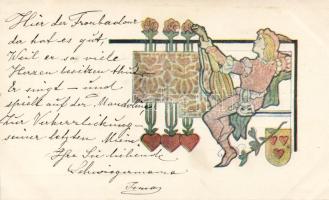 Hier der Troubadour
der hat es gut,
Weil er so viele
Herzen besitzen thut
Er singt – und
spielt auf der Mandoline
zur Verherrlichung
seiner letzten
Ihre Sie liebende
Schwiegermama